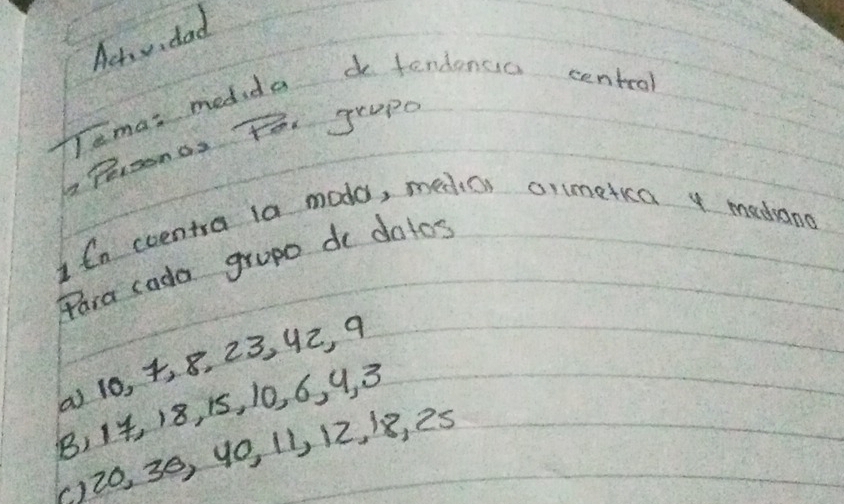 Actividad
Tema: medida de tendencia central
2 Personas Por grupo
1 En cuentra la moda, media arimetica y mediana
Para cada grupo de datos
a) 10, 7, 8, 23, 42, 9
B) 17, 18, 15, 10, 6, 4, 3
c) 20, 30, 40, 11, 12, 18, 25